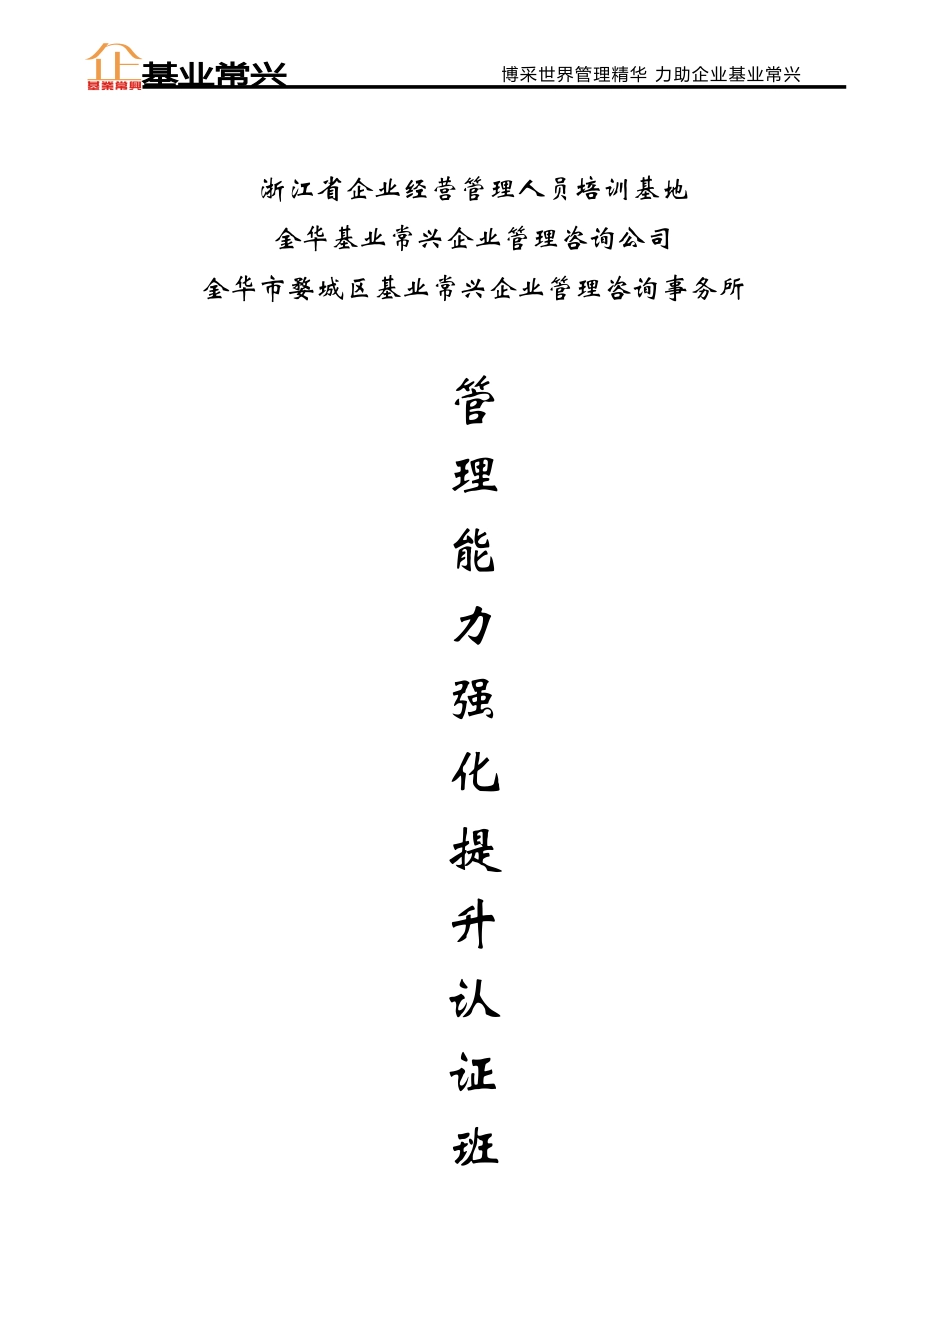 基業常興
基业常兴
博采世界管理精华 力助企业基业常兴
浙江省企业经营管理人员培训基地
金华基业常兴企业管理咨询公司
金华市婺城区基业常兴企业管理咨询事务所
管
理
能
力
强
化
提
升
认
证
班